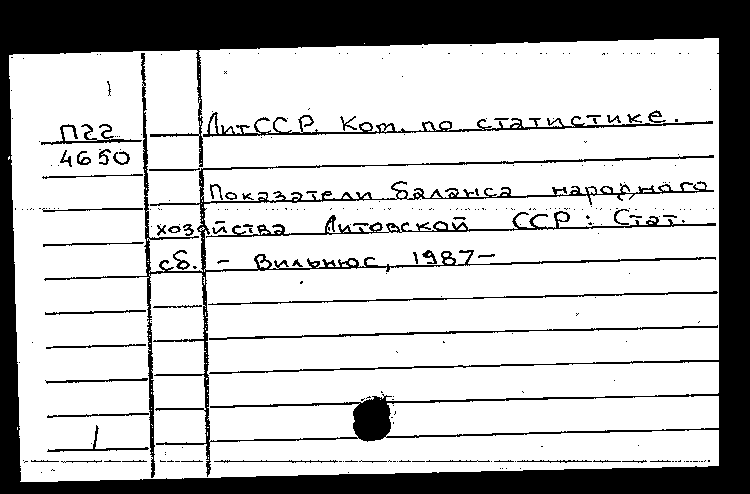 П22
4650
ЛитССР. Ком. по статистике.
Показатели баланса народного
хозяйства Литовской ССР: Стат.
сб. - Вильнюс, 1987-